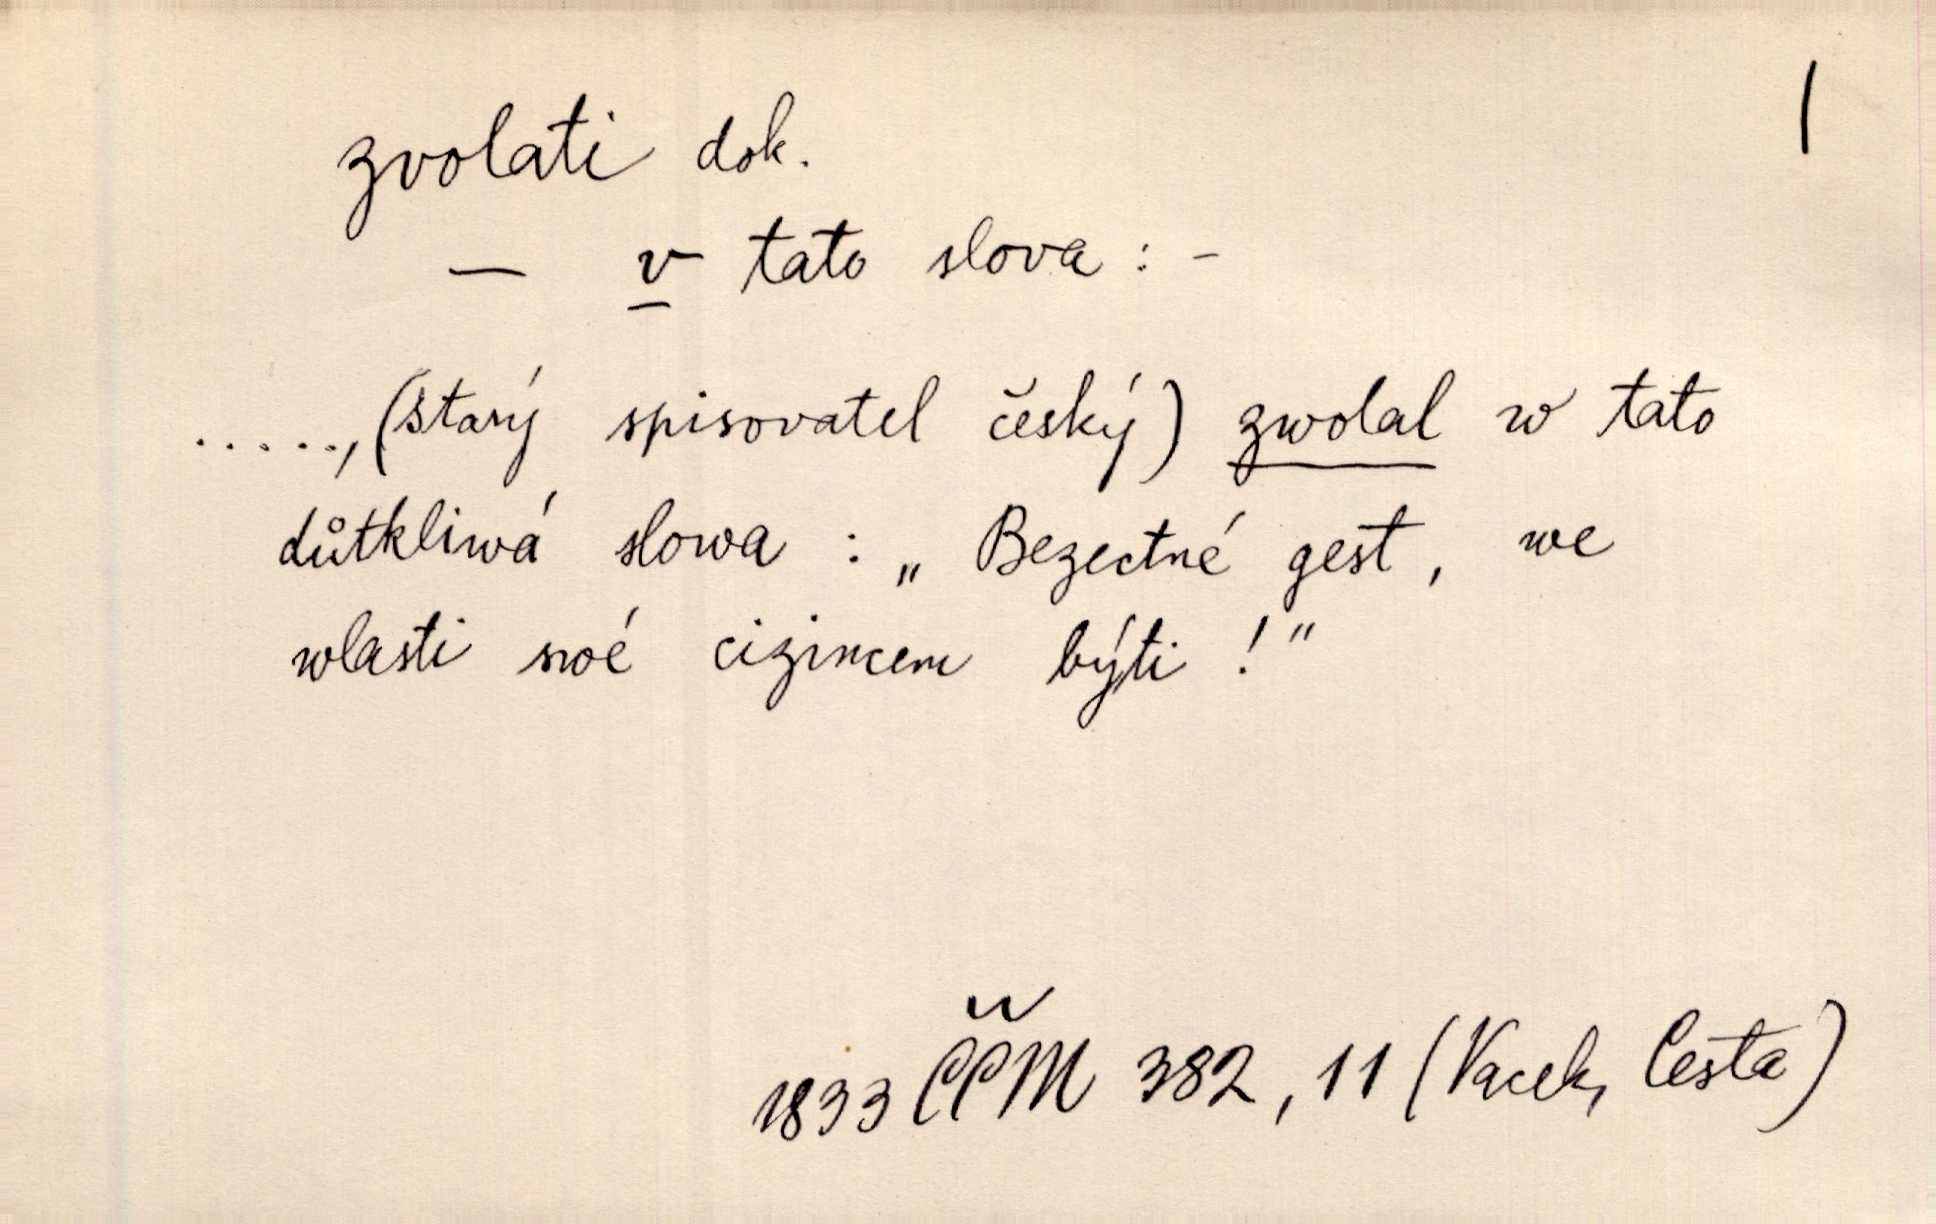 zvolati dok.
— v tato slova : -
....., (starý spisovatel český) zwolal w tato
důtkliwá slowa : „ Bezectné gest, we
wlasti swé cizincem býti ! "
1833 ČČM 382, 11 (Vacek, Cesta)